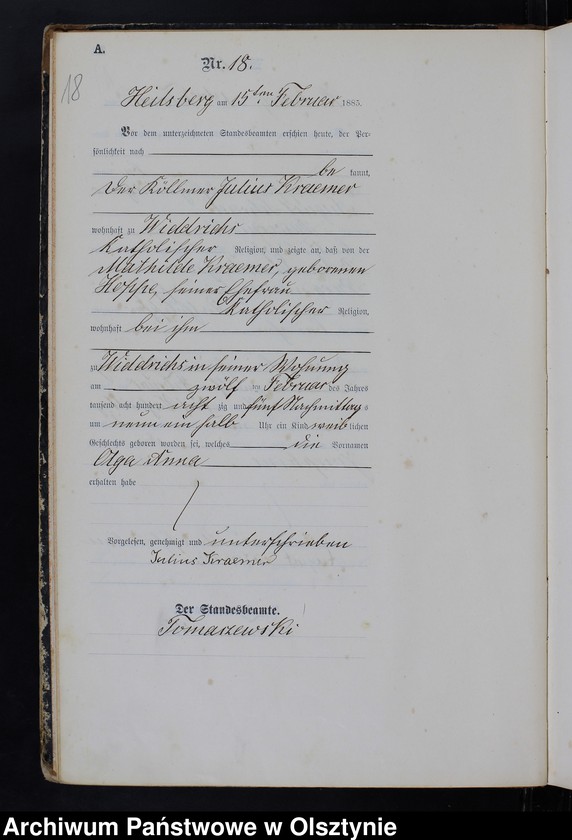 A.
Nr. 18.
18
Heilsberg am 15ten Februar 1885.
Vor dem unterzeichneten Standesbeamten erschien heute, der Per-
sönlichkeit nach
be kannt,
der Köllmer Julius Kraemer
wohnhaft zu Widdrichs
Katholischer Religion, und zeigte an, daß von der
Mathilde Kraemer, geborenen
Hoppe, seiner Ehefrau
Katholischer Religion,
wohnhaft bei ihm
zu Widdrichs in seiner Wohnung
am zwölf ten Februar des Jahres
tausend acht hundert acht zig und fünf Nachmittags
um neun ein halb Uhr ein Kind weiblichen
Geschlechts geboren worden sei, welches die Vornamen
Olga Anna
erhalten habe
Vorgelesen, genehmigt und unterschrieben
Julius Kraemer
Der Standesbeamte.
Tomaszewski
Archiwum Państwowe w Olsztynie